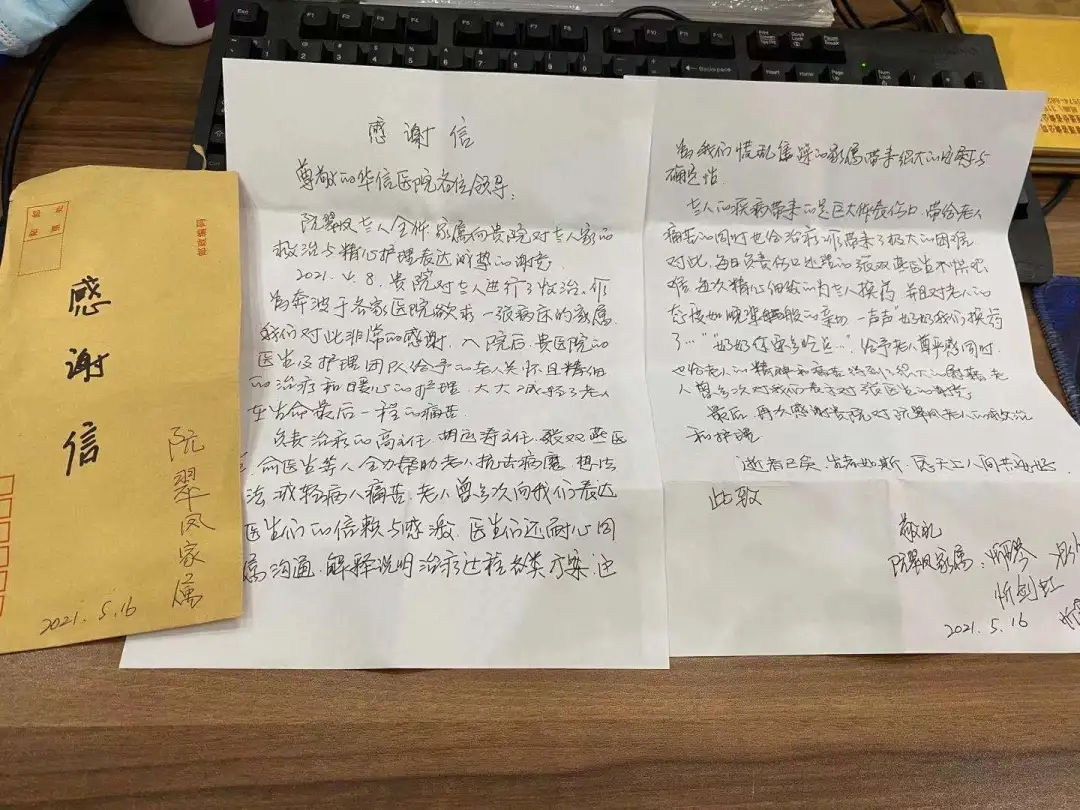 感谢信
阮翠凤家属
2021.5.16
感谢信
尊敬的华信医院各位领导:
阮翠凤老人全体家属向贵院对老人家的
救治与精心护理表达诚挚的谢意
2021.4.8,贵院对老人进行了收治,作
为奔波于各家医院欲求一张病床的家属
我们对此非常的感谢。入院后,贵医院的
医生及护理团队给予的老人关怀且精细
的治疗和暖心的护理,大大减轻了老人
在生命最后一程的痛苦
负责治疗的高主任,胡
医生等人全力帮助老人抗击病魔,想法
法减轻病人痛苦,老人曾多次向我们表达
医生们的信赖与感激,医生们还耐心同
属沟通,解释说明治疗过程各类方案,还
为我们慌乱焦躁的家属带来很大的安慰与
确定性
老人的疾病带来的是巨大体表伤口,带给老人
痛苦的同时也给治疗工作带来了极大的困难
对此,每日负责伤口处理的张双燕医生不惧困
难,每次精心细致的为老人换药,并且对老人的
态度如晚辈般的亲切,一声声"奶奶我们换药
了…""奶奶你要多吃点…",给予老人尊严感同时,
也给老人的精神和病变很大的慰藉,老
人曾多次对我们表示对张医生的谢意
最后,再次感谢贵院对阮翠凤老人的收治
和护理
逝者已矣,生者如斯,愿天上人间共安好
此致
敬礼
阮翠凤家属:
忻剑虹
2021.5.16